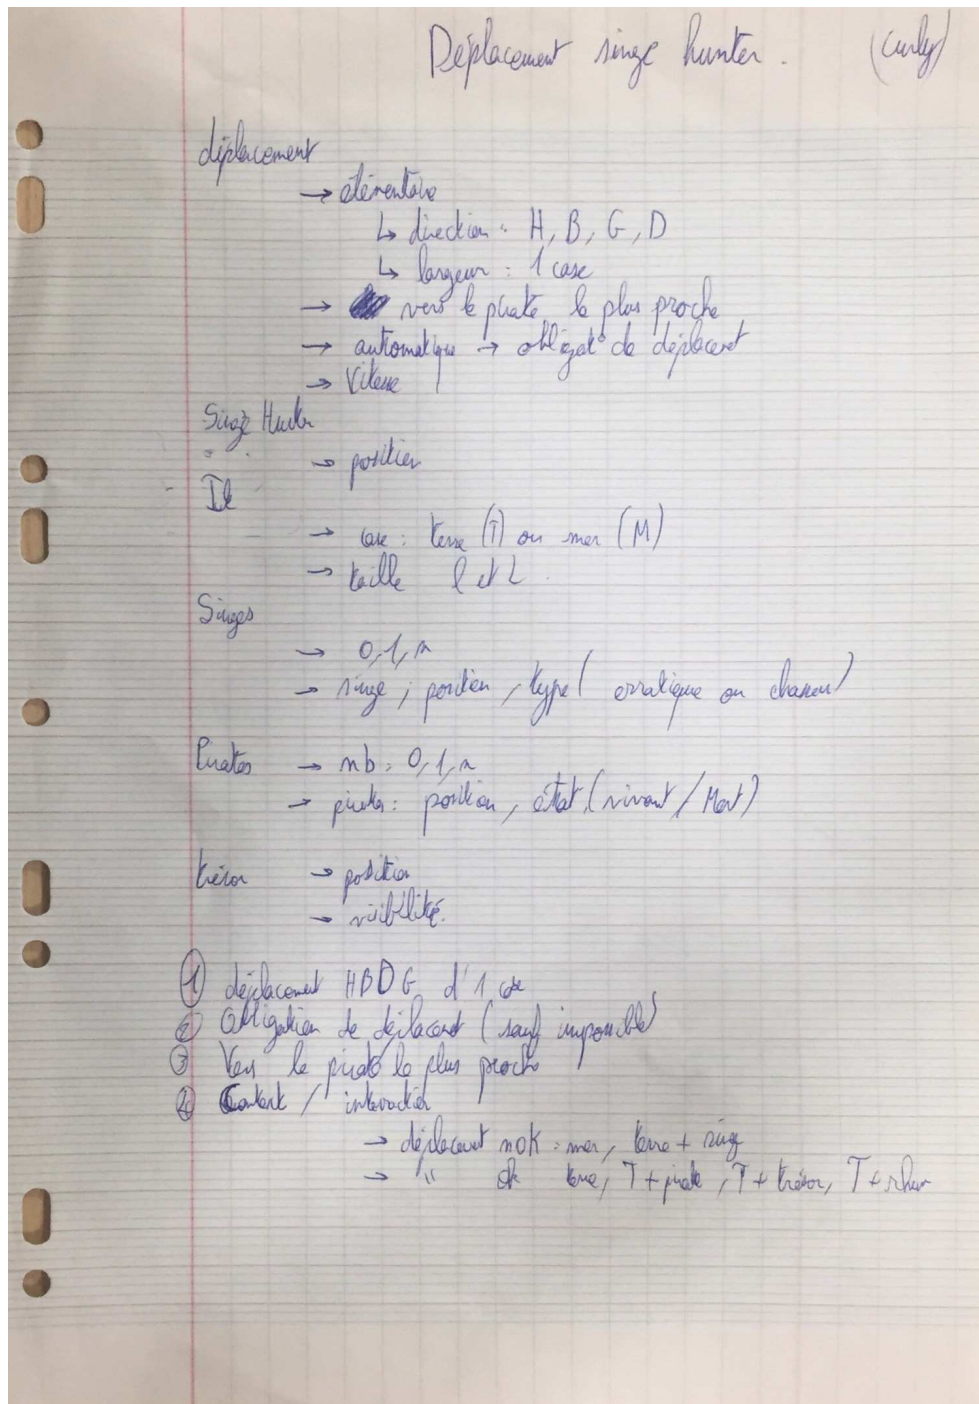 Déplacement singe hunter. (Curly)
déplacement
→ élémentaire
↳ direction : H, B, G, D
↳ largeur : 1 case
→ vers le pirate le plus proche
→ automatique → obligat° de déplacemt
→ Vitesse
Singe Hunter
→ position
Ile
→ case : terre (T) ou mer (M)
→ taille l et L.
Singes
→ 0, 1, n
→ singe ; position, type ( erratique ou chasseur)
Pirates → nb : 0, 1, n
→ pirates : position, état (vivant / Mort)
trésor → position
→ visibilité.
① déplacement HBDG d'1 case
② Obligation de déplacemt (sauf impossible)
③ Vers le pirate le plus proche
④ Contact / interaction
→ déplacemt nok : mer, terre + singe
→ " ok terre, T + pirate, T + trésor, T + rhum